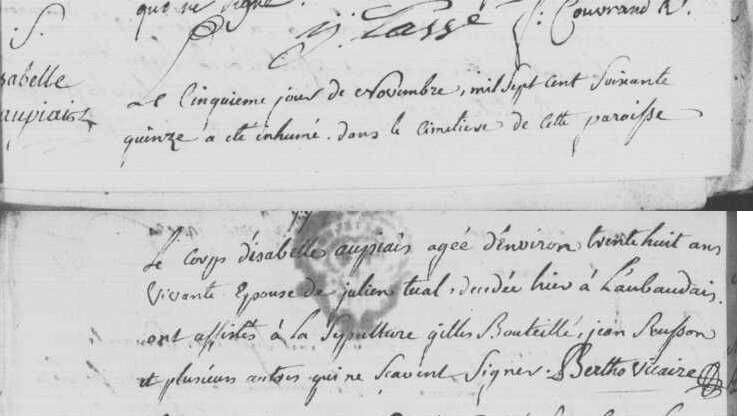 que ne signe.
J. Lassé J. Couvrand R.
S.
sabelle
aupiais
Le Cinquieme jour de Novembre, mil Sept Cent Soixante
quinze a eté inhumé dans le Cimetiere de Cette paroisse
Le Corps d'isabelle aupiais ageé d'Environ trente huit ans
Vivante Epouse de julien tual, decedée hier à Laubaudais.
ont assistés à La Sepulture gilles Bouteillé, jean
et plusieurs autres qui ne Scavent Signer. Bertho Vicaire